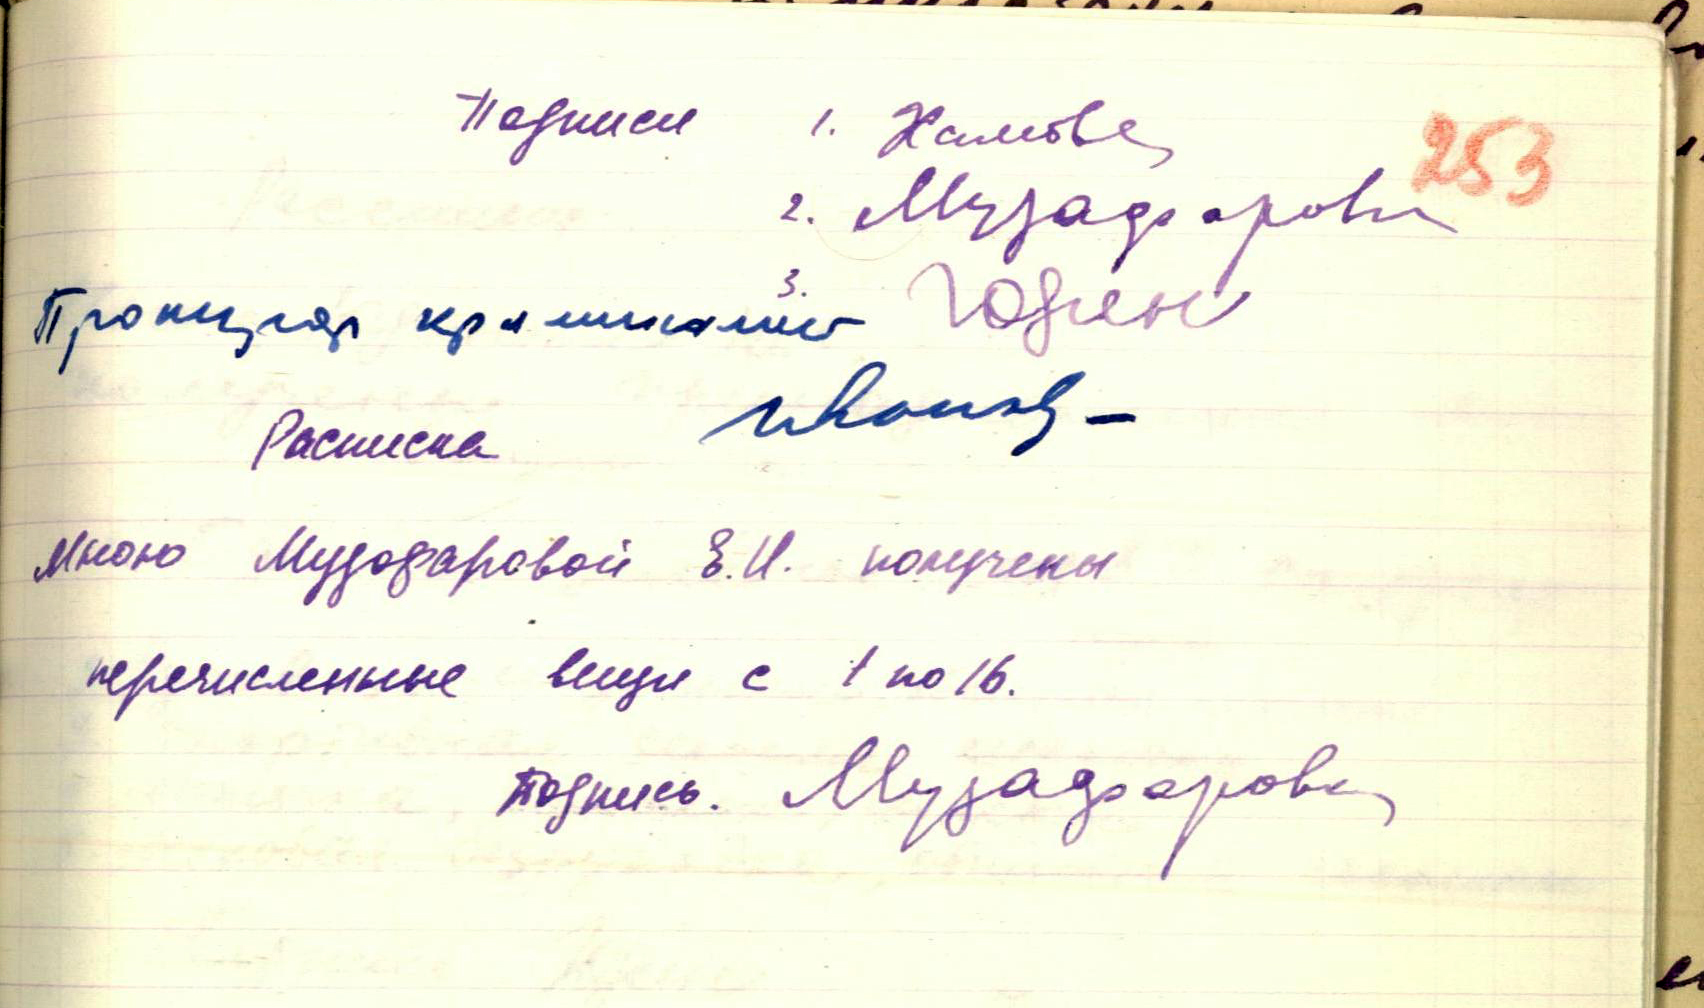 Подписи 1. Хамова
253
2. Музафарова
3. Годен
Прокурор криминалист
Иванов
Расписка
Мною Музафаровой З.И. получены
перечисленные вещи с 1 по 16.
Подпись. Музафарова